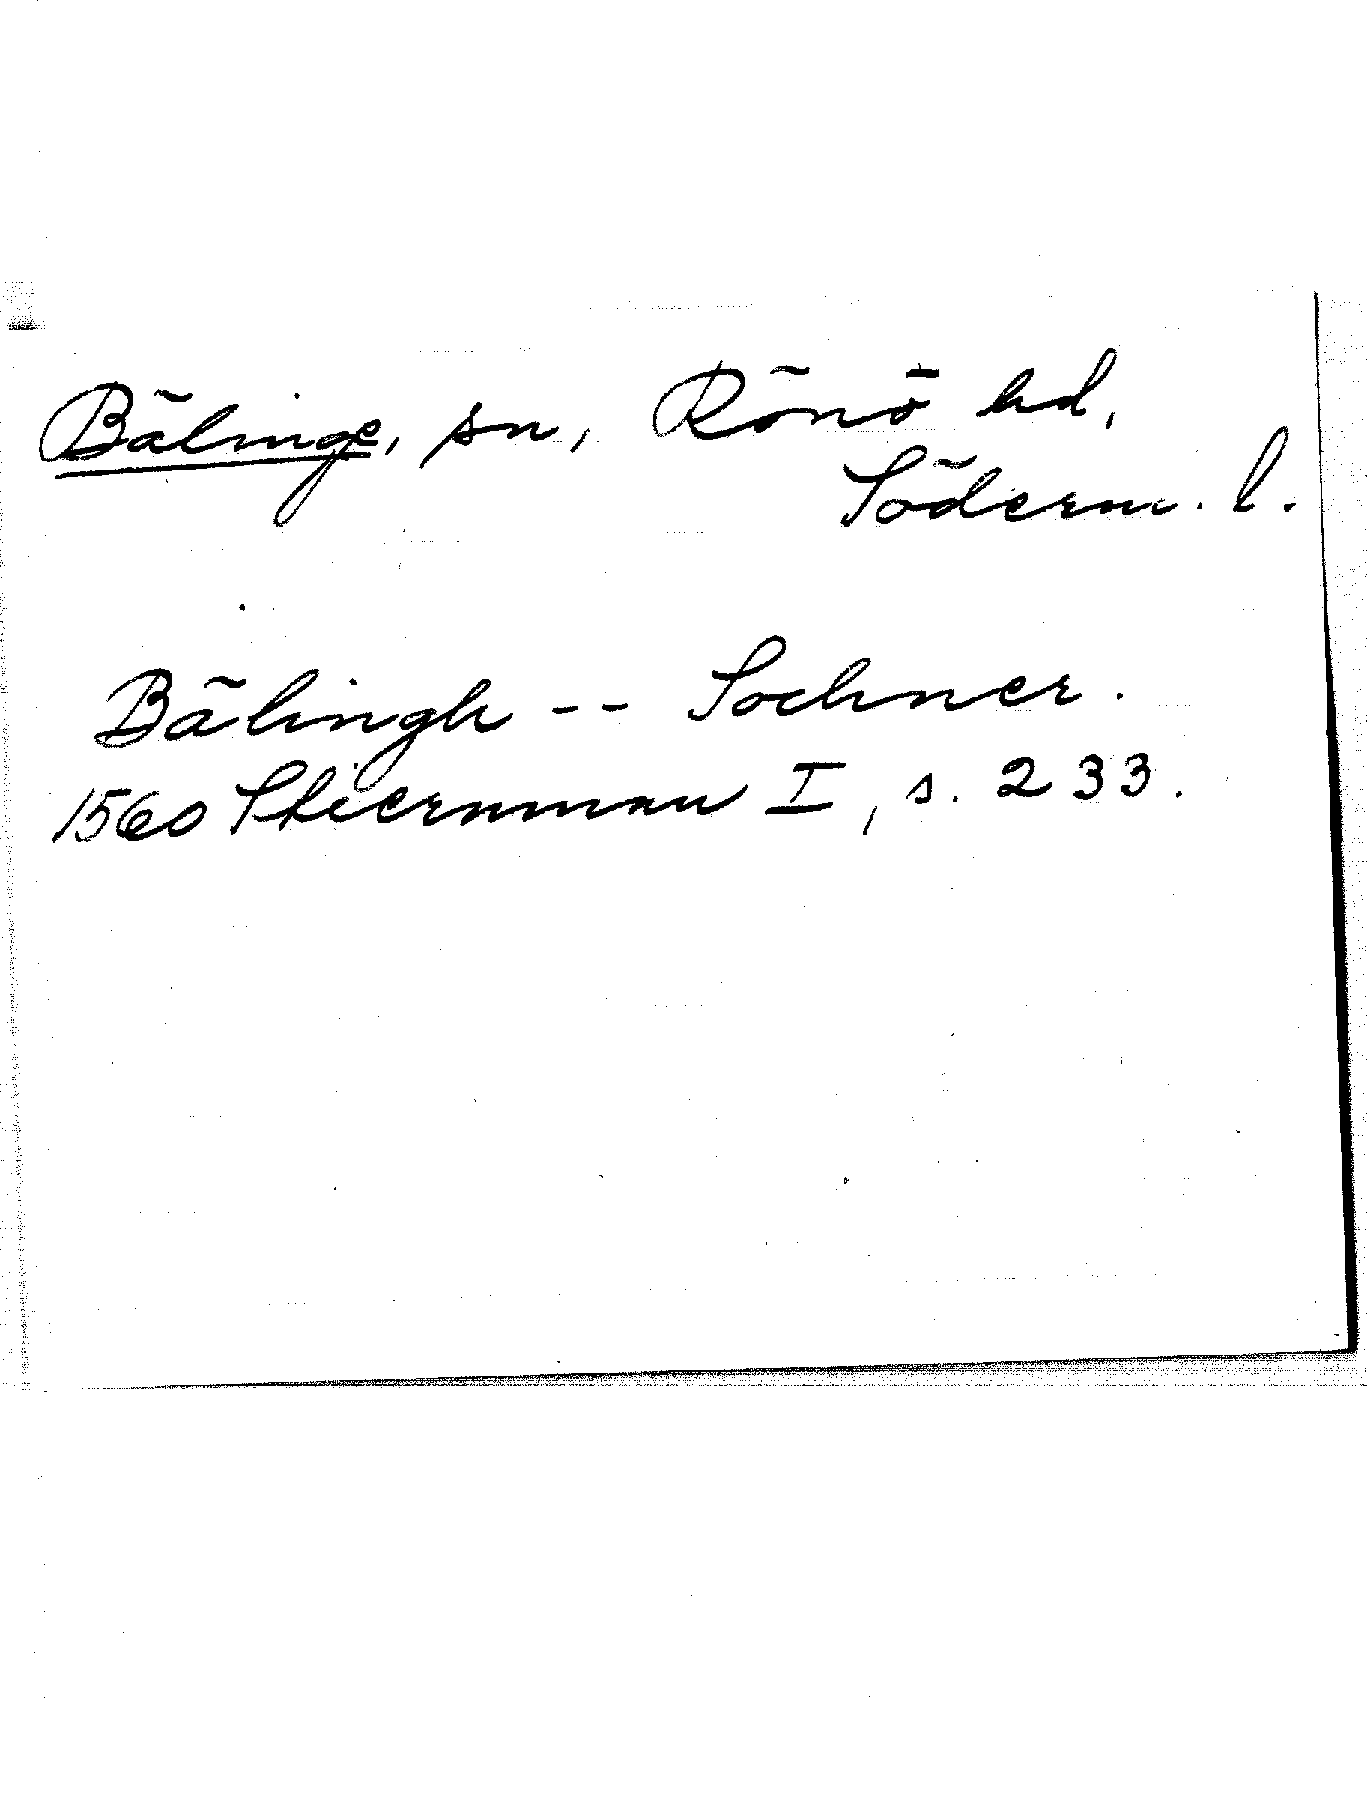 Bälinge, sn, Rönö hd,
Söderm. l.
Bälingh -- Sochner.
1560 Stiernman I, s. 233.